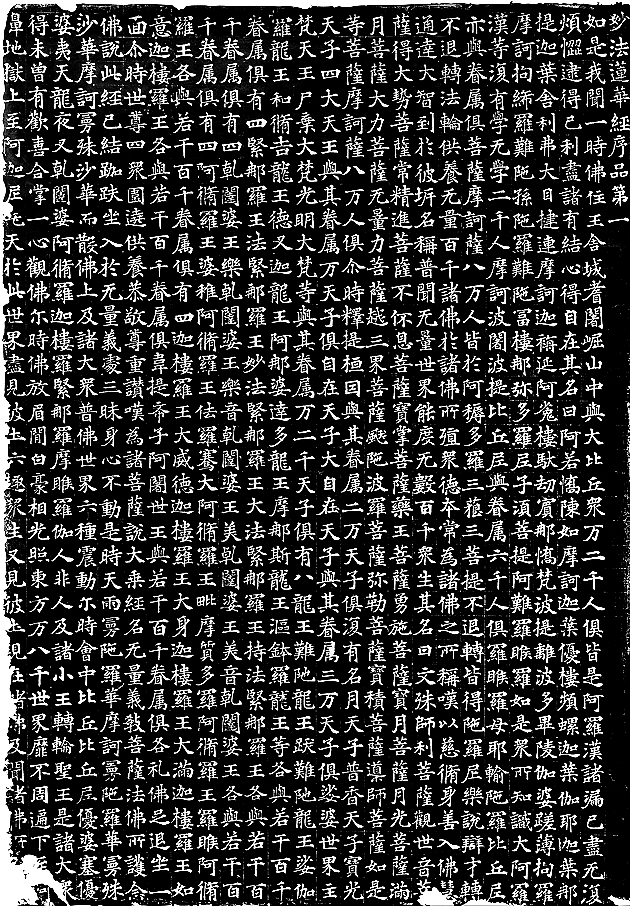 妙法蓮華經序品第一
如是我聞一時佛住王舍城耆闍崛山中與大比丘衆万二千人俱皆是阿羅漢諸漏已盡无復
煩惱逮得己利盡諸有結心得自在其名曰阿若憍陳如摩訶迦葉優樓頻螺迦葉伽耶迦葉那
提迦葉舍利弗大目揵連摩訶迦旃延阿㝹樓馱劫賓那憍梵波提離波多畢陵伽婆蹉薄拘羅
摩訶拘絺羅難陁孫陁羅難陁冨樓那弥多羅尼子湏菩提阿難羅睺羅如是衆所知識大阿羅
漢等復有學无學二千人摩訶波闍波提比丘尼與眷属六千人俱羅睺羅母耶輸陁羅比丘尼
亦與眷属俱菩薩摩訶薩八万人皆於阿耨多羅三藐三菩提不退轉皆得陁羅尼樂說辯才轉
不退轉法輪供養无量百千諸佛於諸佛所殖衆德本常為諸佛之所稱嘆以慈脩身善入佛慧
通達大智到於彼岸名稱普聞无量世界能度无數百千衆生其名曰文殊師利菩薩觀世音菩
薩得大勢菩薩常精進菩薩不休息菩薩寶掌菩薩藥王菩薩勇施菩薩寶月菩薩月光菩薩滿
月菩薩大力菩薩无量力菩薩越三界菩薩颰陁波羅菩薩弥勒菩薩寶積菩薩導師菩薩如是
等菩薩摩訶薩八万人俱尒時釋提桓因與其眷属二万天子俱復有名月天子普香天子寶光
天子四大天王與其眷属万天子俱自在天子大自在天子與其眷属三万天子俱娑婆世界主
梵天王尸棄大梵光明大梵等與其眷属万二千天子俱有八龍王難陁龍王跋難陁龍王娑伽
羅龍王和脩吉龍王德叉迦龍王阿那婆達多龍王摩那斯龍王漚鉢羅龍王等各與若干百千
眷属俱有四緊那羅王法緊那羅王妙法緊那羅王大法緊那羅王持法緊那羅王各與若干百
千眷属俱有四乹闥婆王樂乹闥婆王樂音乹闥婆王美乹闥婆王美音乹闥婆王各與若干百
千眷属俱有四阿脩羅王婆稚阿脩羅王佉羅騫大阿脩羅王毗摩質多羅阿脩羅王羅睺阿脩
羅王各與若干百千眷属俱有四迦樓羅王大威德迦樓羅王大身迦樓羅王大滿迦樓羅王如
意迦樓羅王各與若干百千眷属俱韋提希子阿闍世王與若干百千眷属俱各礼佛之退坐一
面尒時世尊四衆圍遶供養恭敬尊重讃嘆為諸菩薩說大乘經名无量義教菩薩法佛所護念
佛說此經已結跏趺坐入於无量義處三昧身心不動是時天雨曼陁羅華摩訶曼陁羅華曼殊
沙華摩訶曼殊沙華而散佛上及諸大衆普佛世界六種震動尒時會中比丘比丘尼優婆塞優
婆夷天龍夜叉乹闥婆阿脩羅迦樓羅緊那羅摩睺羅伽人非人及諸小王轉輪聖王是諸大衆
得未曾有歡喜合掌一心觀佛尒時佛放眉間白豪相光照東方万八千世界靡不周遍下至
鼻地獄上至阿迦尼吒天於此世界盡見彼土六趣衆生又見彼土現在諸佛及聞諸佛所